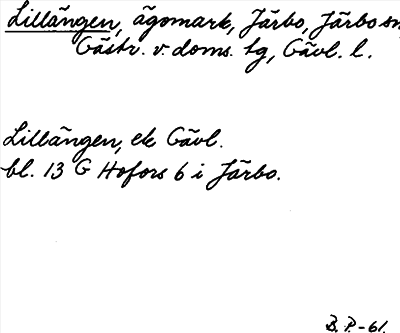 Lillängen, ägomark, Järbo, Järbo sn,
Gästr. v. doms. tg, Gävl. l.
Lillängen, ek Gävl.
bl. 13 G Hofors 6 i Järbo.
B. P. -61.